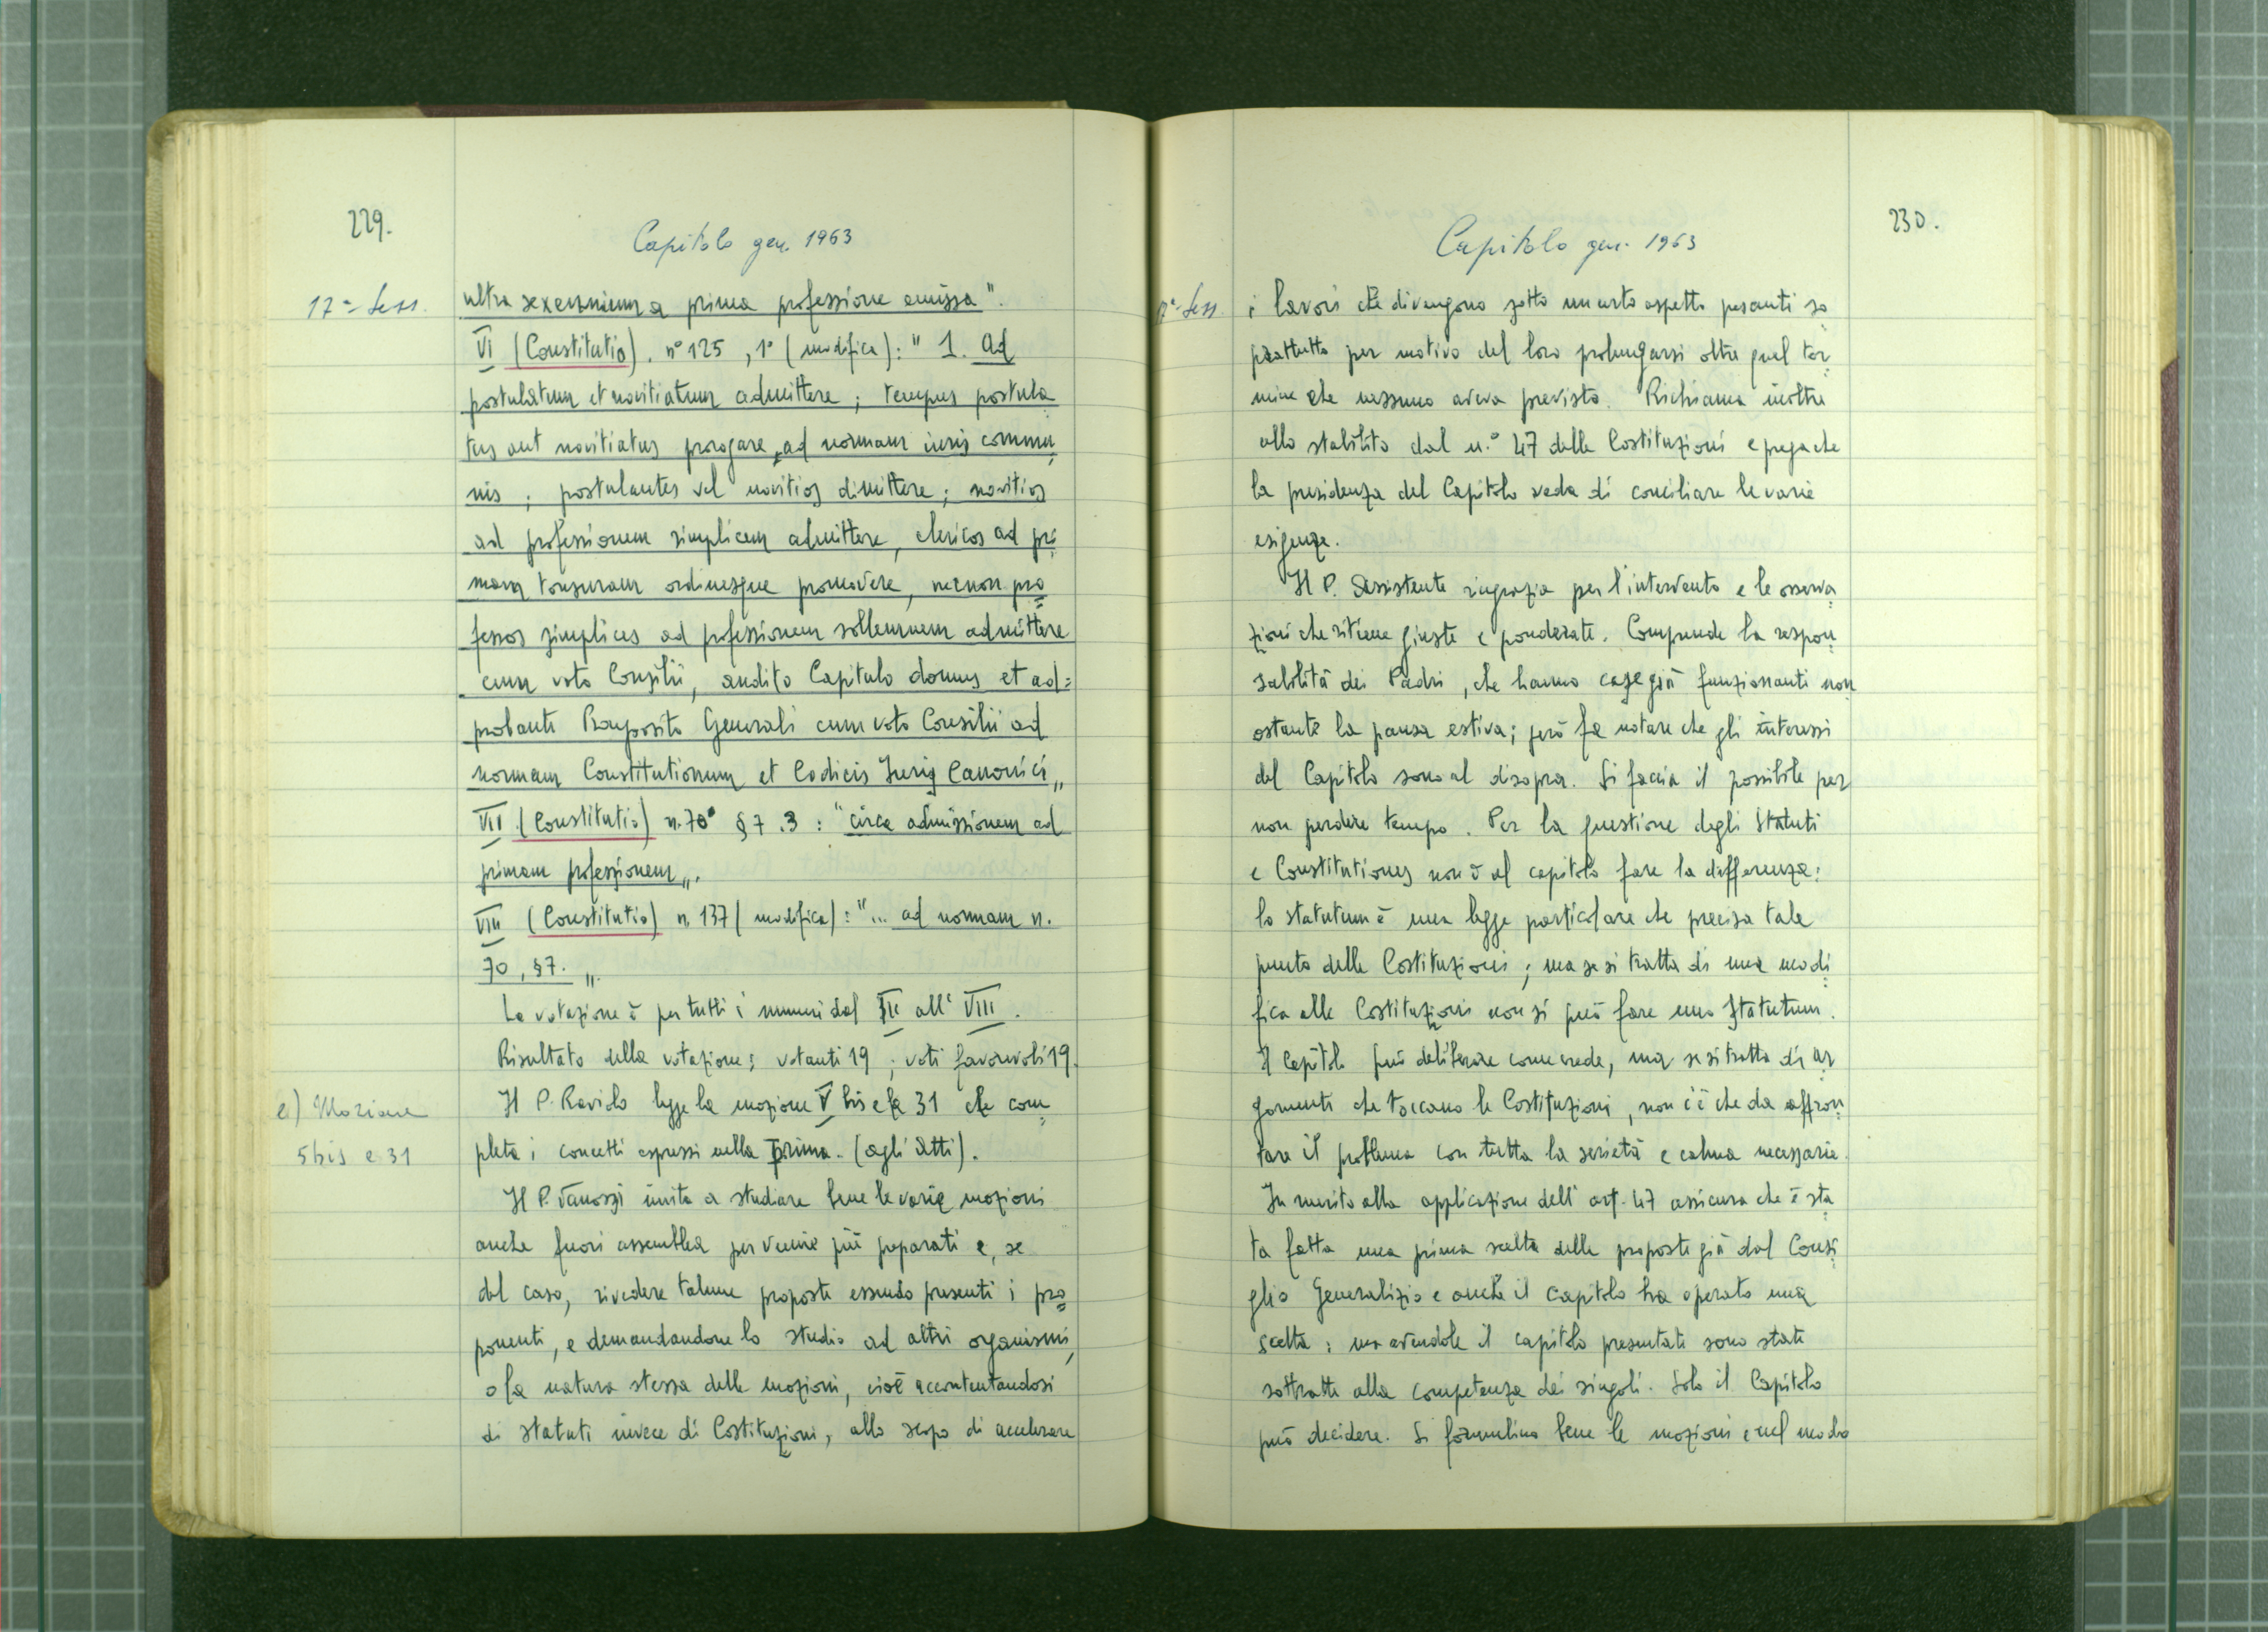 229.
Capitolo gen. 1963
17ª Sess.
ultra sexennium a prima professione emissa".
VI (Constitutio). n° 125, 1° (modifica): " 1. Ad
postulatum et novitiatum admittere; tempus postula
tus aut novitiatus prorogare, ad normam iuris commu
nis; postulantes vel novitios dimittere; novitios
ad professionem simplicem admittere, clericos ad pri
mam tonsuram ordinesque promovere, necnon pro
fessos simplices ad professionem sollemnem admittere
cum voto Consilii, audito Capitulo domus et ad=
probante Praeposito Generali cum voto Consilii ad
normam Constitutionum et Codicis Juris Canonici„
VII (Constitutio) n. 70° § 7.3: "circa admissionem ad
primam professionem„.
VIII (Constitutio) n. 137 (modifica): "... ad normam n.
70, §7. „.
La votazione è per tutti i numeri dal III all' VIII.
Risultato della votazione: votanti 19; voti favorevoli 19.
e) Mozione
5 bis e 31
Il P. Raviolo legge la mozione V bis e la 31 che com
pleta i concetti espressi nella prima. (agli Atti).
Il P. Vanossi invita a studiare bene le varie mozioni
anche fuori assemblea per venire più preparati e, se
del caso, rivedere talune proposte essendo presenti i pro
ponenti, e demandandone lo studio ad altri organismi,
o la natura stessa delle mozioni, cioè accontentandosi
di statuti invece di Costituzioni, allo scopo di accelerare
230.
Capitolo gen. 1963
17ª Sess.
i lavori che divengono sotto un certo aspetto pesanti so
prattutto per motivo del loro prolungarsi oltre quel ter
mine che nessuno aveva previsto. Richiama inoltre
allo stabilito dal n.° 47 delle Costituzioni e prega che
la presidenza del Capitolo veda di conciliare le varie
esigenze.
Il P. Assistente ringrazia per l'intervento e le osserva
zioni che ritiene giuste e ponderate. Comprende la respon
sabilità dei Padri, che hanno case già funzionanti non
ostante la pausa estiva; però fa notare che gli interessi
del Capitolo sono al disopra. Si faccia il possibile per
non perdere tempo. Per la questione degli Statuti
e Constitutiones non è al capitolo fare la differenza:
lo statutum è una legge particolare che precisa tale
punto delle Costituzioni; ma se si tratta di una modi
fica alle Costituzioni non si può fare uno Statutum.
Il Capitolo può deliberare come crede, ma se si tratta di ar
gomenti che toccano le Costituzioni, non c'è che da affron
tare il problema con tutta la serietà e calma necessarie.
In merito alla applicazione dell' art. 47 assicura che è sta
ta fatta una prima scelta delle proposte già dal Consi
glio Generalizio e anche il Capitolo ha operato una
scelta: ma avendole il capitolo presentate sono state
sottratte alla competenza dei singoli. Solo il Capitolo
può decidere. Si formulino bene le mozioni e nel modo